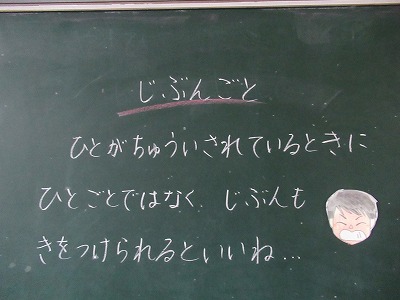 じぶんごと
ひとがちゅういされているときに
ひとごとではなく、じぶんも
きをつけられるといいね...